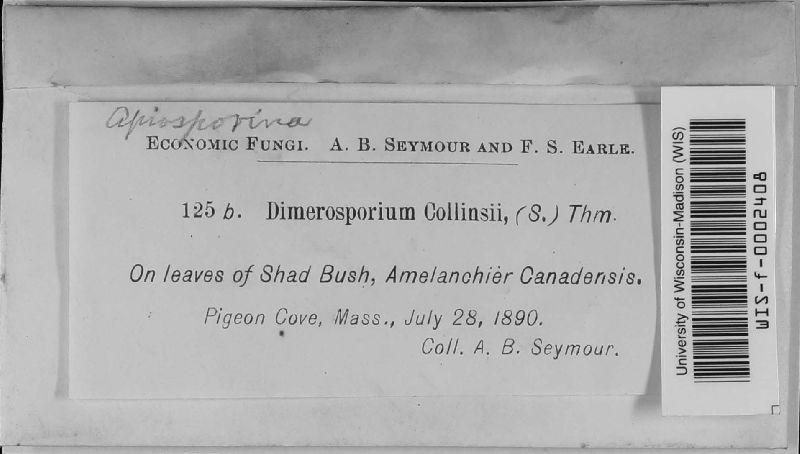 Apiosporina
ECONOMIC FUNGI. A. B. SEYMOUR AND F. S. EARLE.
125 b. Dimerosporium Collinsii, (S.) Thm.
On leaves of Shad Bush, Amelanchier Canadensis.
Pigeon Cove, Mass., July 28, 1890.
Coll. A. B. Seymour.
University of Wisconsin-Madison (WIS)
WIS-f-0002408